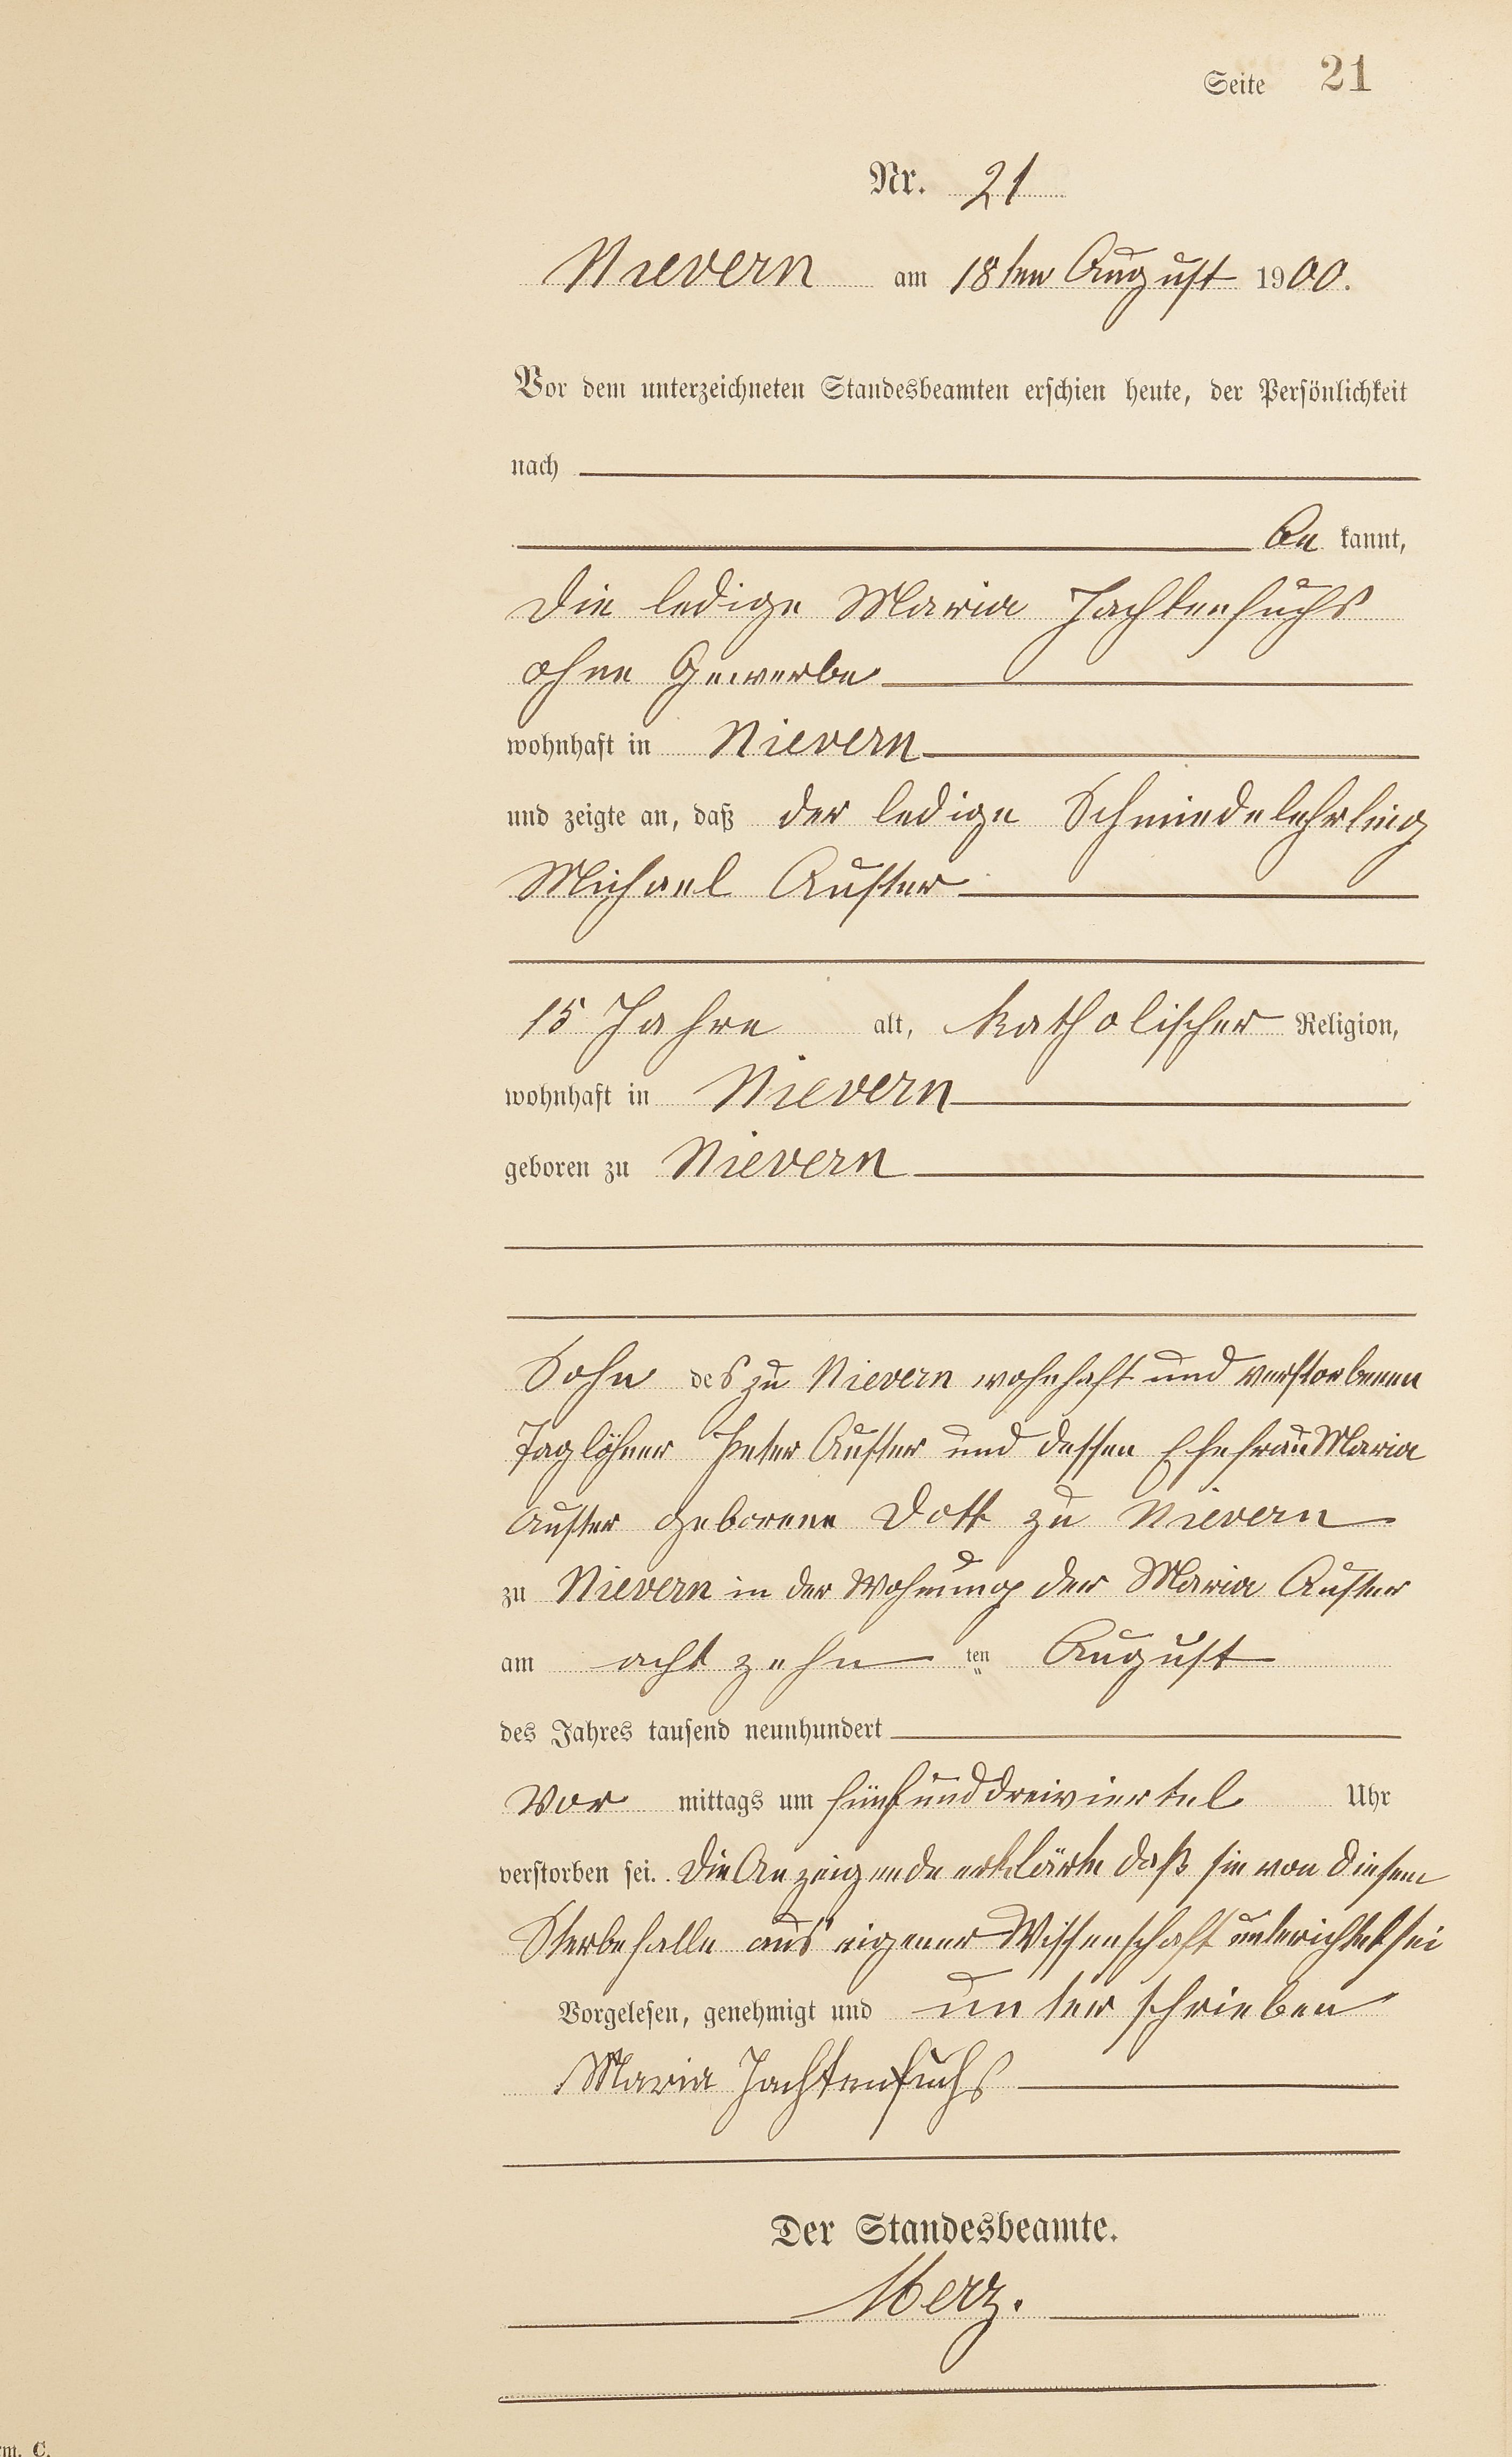 Seite 21
Nr. 21
Nievern am 18ten August 1900.
Vor dem unterzeichneten Standesbeamten erschien heute, der Persönlichkeit
nach
be kannt,
die ledige Maria Jachtenfuchs
ohne Gewerbe
wohnhaft in Nievern
und zeigte an, daß der ledige Schmiedelehrling
Michael Auster
15 Jahre alt, katholischer Religion,
wohnhaft in Nievern
geboren zu Nievern
Sohn des zu Nievern wohnhaft und verstorbenen
Taglöhner Peter Auster und dessen Ehefrau Maria
Auster geborene Dott zu Nievern
zu Nievern in der Wohnung der Maria Auster
am acht zehn ten August
des Jahres tausend neunhundert
Vor mittags um fünfunddreiviertel Uhr
verstorben sei. Die Anzeigende erklärte daß sie von diesem
Sterbefalle aus eigener Wissenschaft unterichtet sei
Vorgelesen, genehmigt und unterschrieben
Maria Jachtenfuchs
Der Standesbeamte.
Merz.
rm. C.